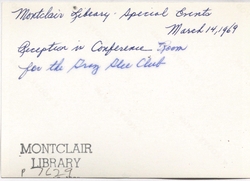 Montclair Library - Special Events
March 14, 1969
Reception in Conference Room
for the Glee Club
MONTCLAIR
LIBRARY
P 7629